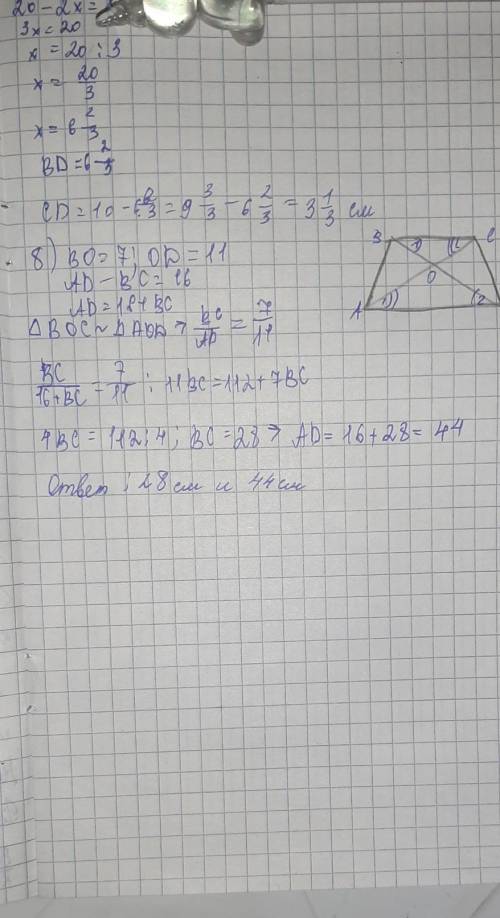 20 - 2x =
3x = 20
x = 20 : 3
x = 20/3
x = 6 2/3
BD = 6 2/3
CD = 10 - 6 2/3 = 9 3/3 - 6 2/3 = 3 1/3 см
8) BO = 7; OD = 11
AD - BC = 16
AD = 16 + BC
△BOC ~ △AOD → BC/AD = 7/11
BC/16+BC = 7/11 ; 11BC = 112 + 7BC
4BC = 112 : 4 ; BC = 28 → AD = 16 + 28 = 44
Ответ : 28 см и 44 см
B
C
O
A
1
2